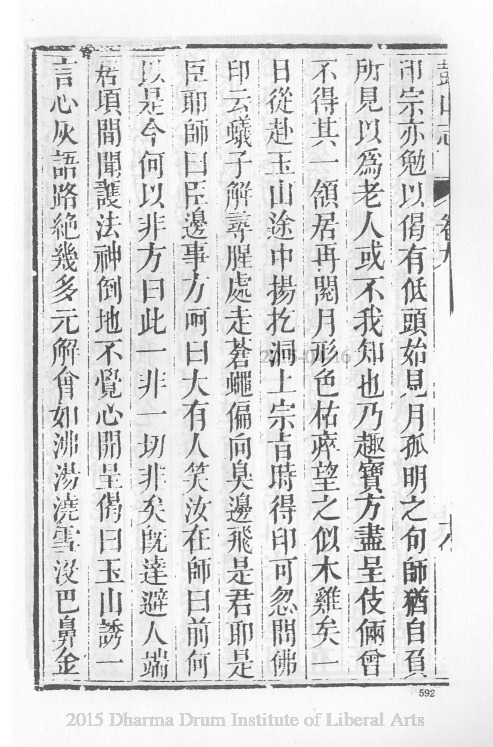 鼓山志 卷九
印宗亦勉以偈有低頭始見月孤明之句師猶自負
所見以為老人或不我知也乃趣寶方盡呈伎倆曾
不得其一頷居再閱月形色枯瘁望之似木雞矣一
日從赴玉山途中揚扢洞上宗旨時得印可忽問佛
印云蟻子解尋腥處走蒼蠅偏向臭邊飛是君耶是
臣耶師曰臣邊事方呵曰大有人笑汝在師曰前何
以是今何以非方曰此一非一切非矣旣達避人端
居頃間聞護法神倒地不覺心開呈偈曰玉山誘一
言心灰語路絶幾多元解會如沸湯澆雪沒巴鼻金
592
2015 Dharma Drum Institute of Liberal Arts